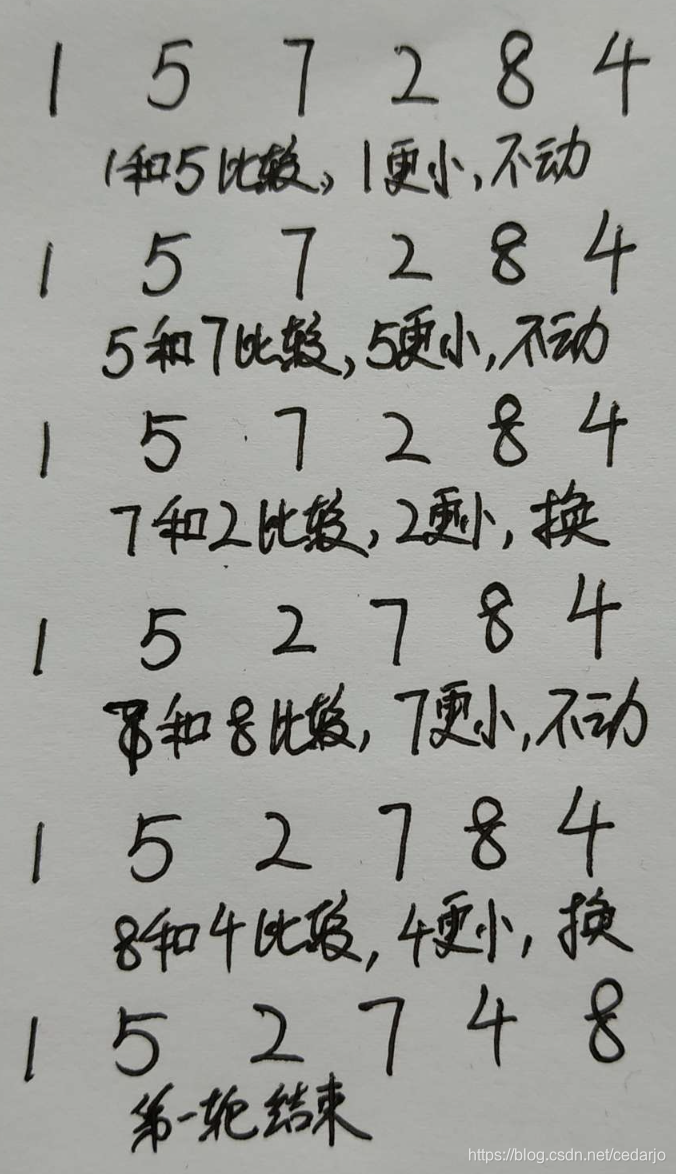 1 5 7 2 8 4
1和5比较，1更小，不动
1 5 7 2 8 4
5和7比较，5更小，不动
1 5 7 2 8 4
7和2比较，2更小，换
1 5 2 7 8 4
7和8比较，7更小，不动
1 5 2 7 8 4
8和4比较，4更小，换
1 5 2 7 4 8
第一轮结束
https://blog.csdn.net/cedarjo